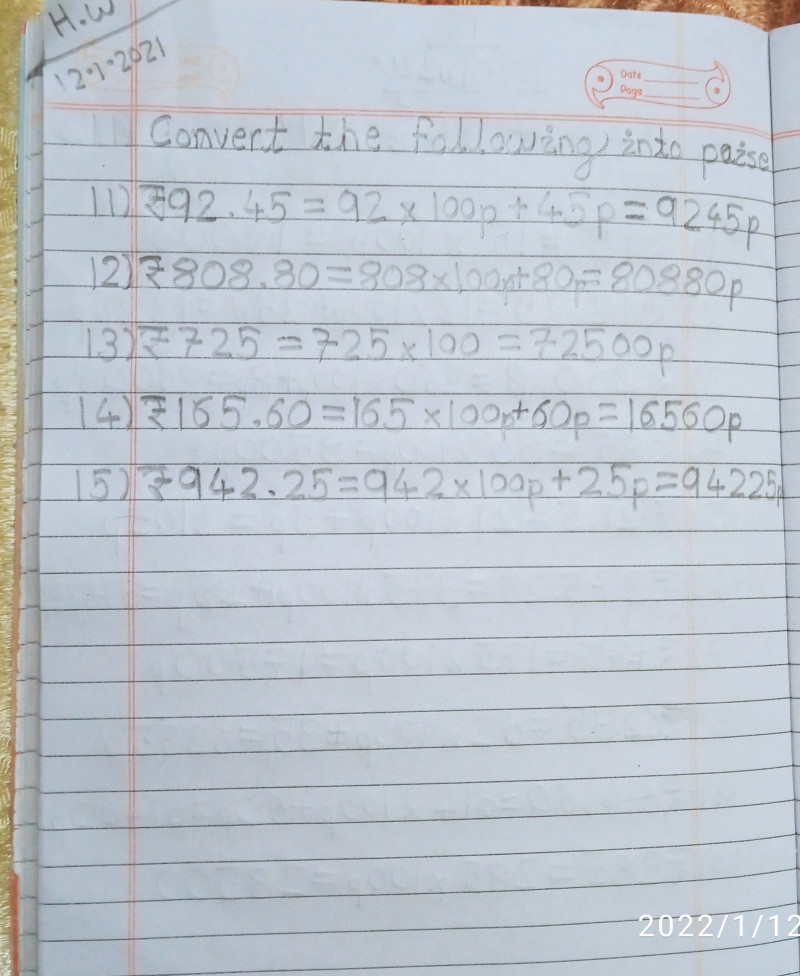 H.W
12·1·2021
Date
Page
Convert the following into paise
11) ₹92.45 = 92 x 100p + 45p = 9245p
12) ₹808.80 = 808 x 100p + 80p = 80880p
13) ₹725 = 725 x 100 = 72500p
14) ₹165.60 = 165 x 100p + 60p = 16560p
15) ₹942.25 = 942 x 100p + 25p = 94225p
2022/1/12